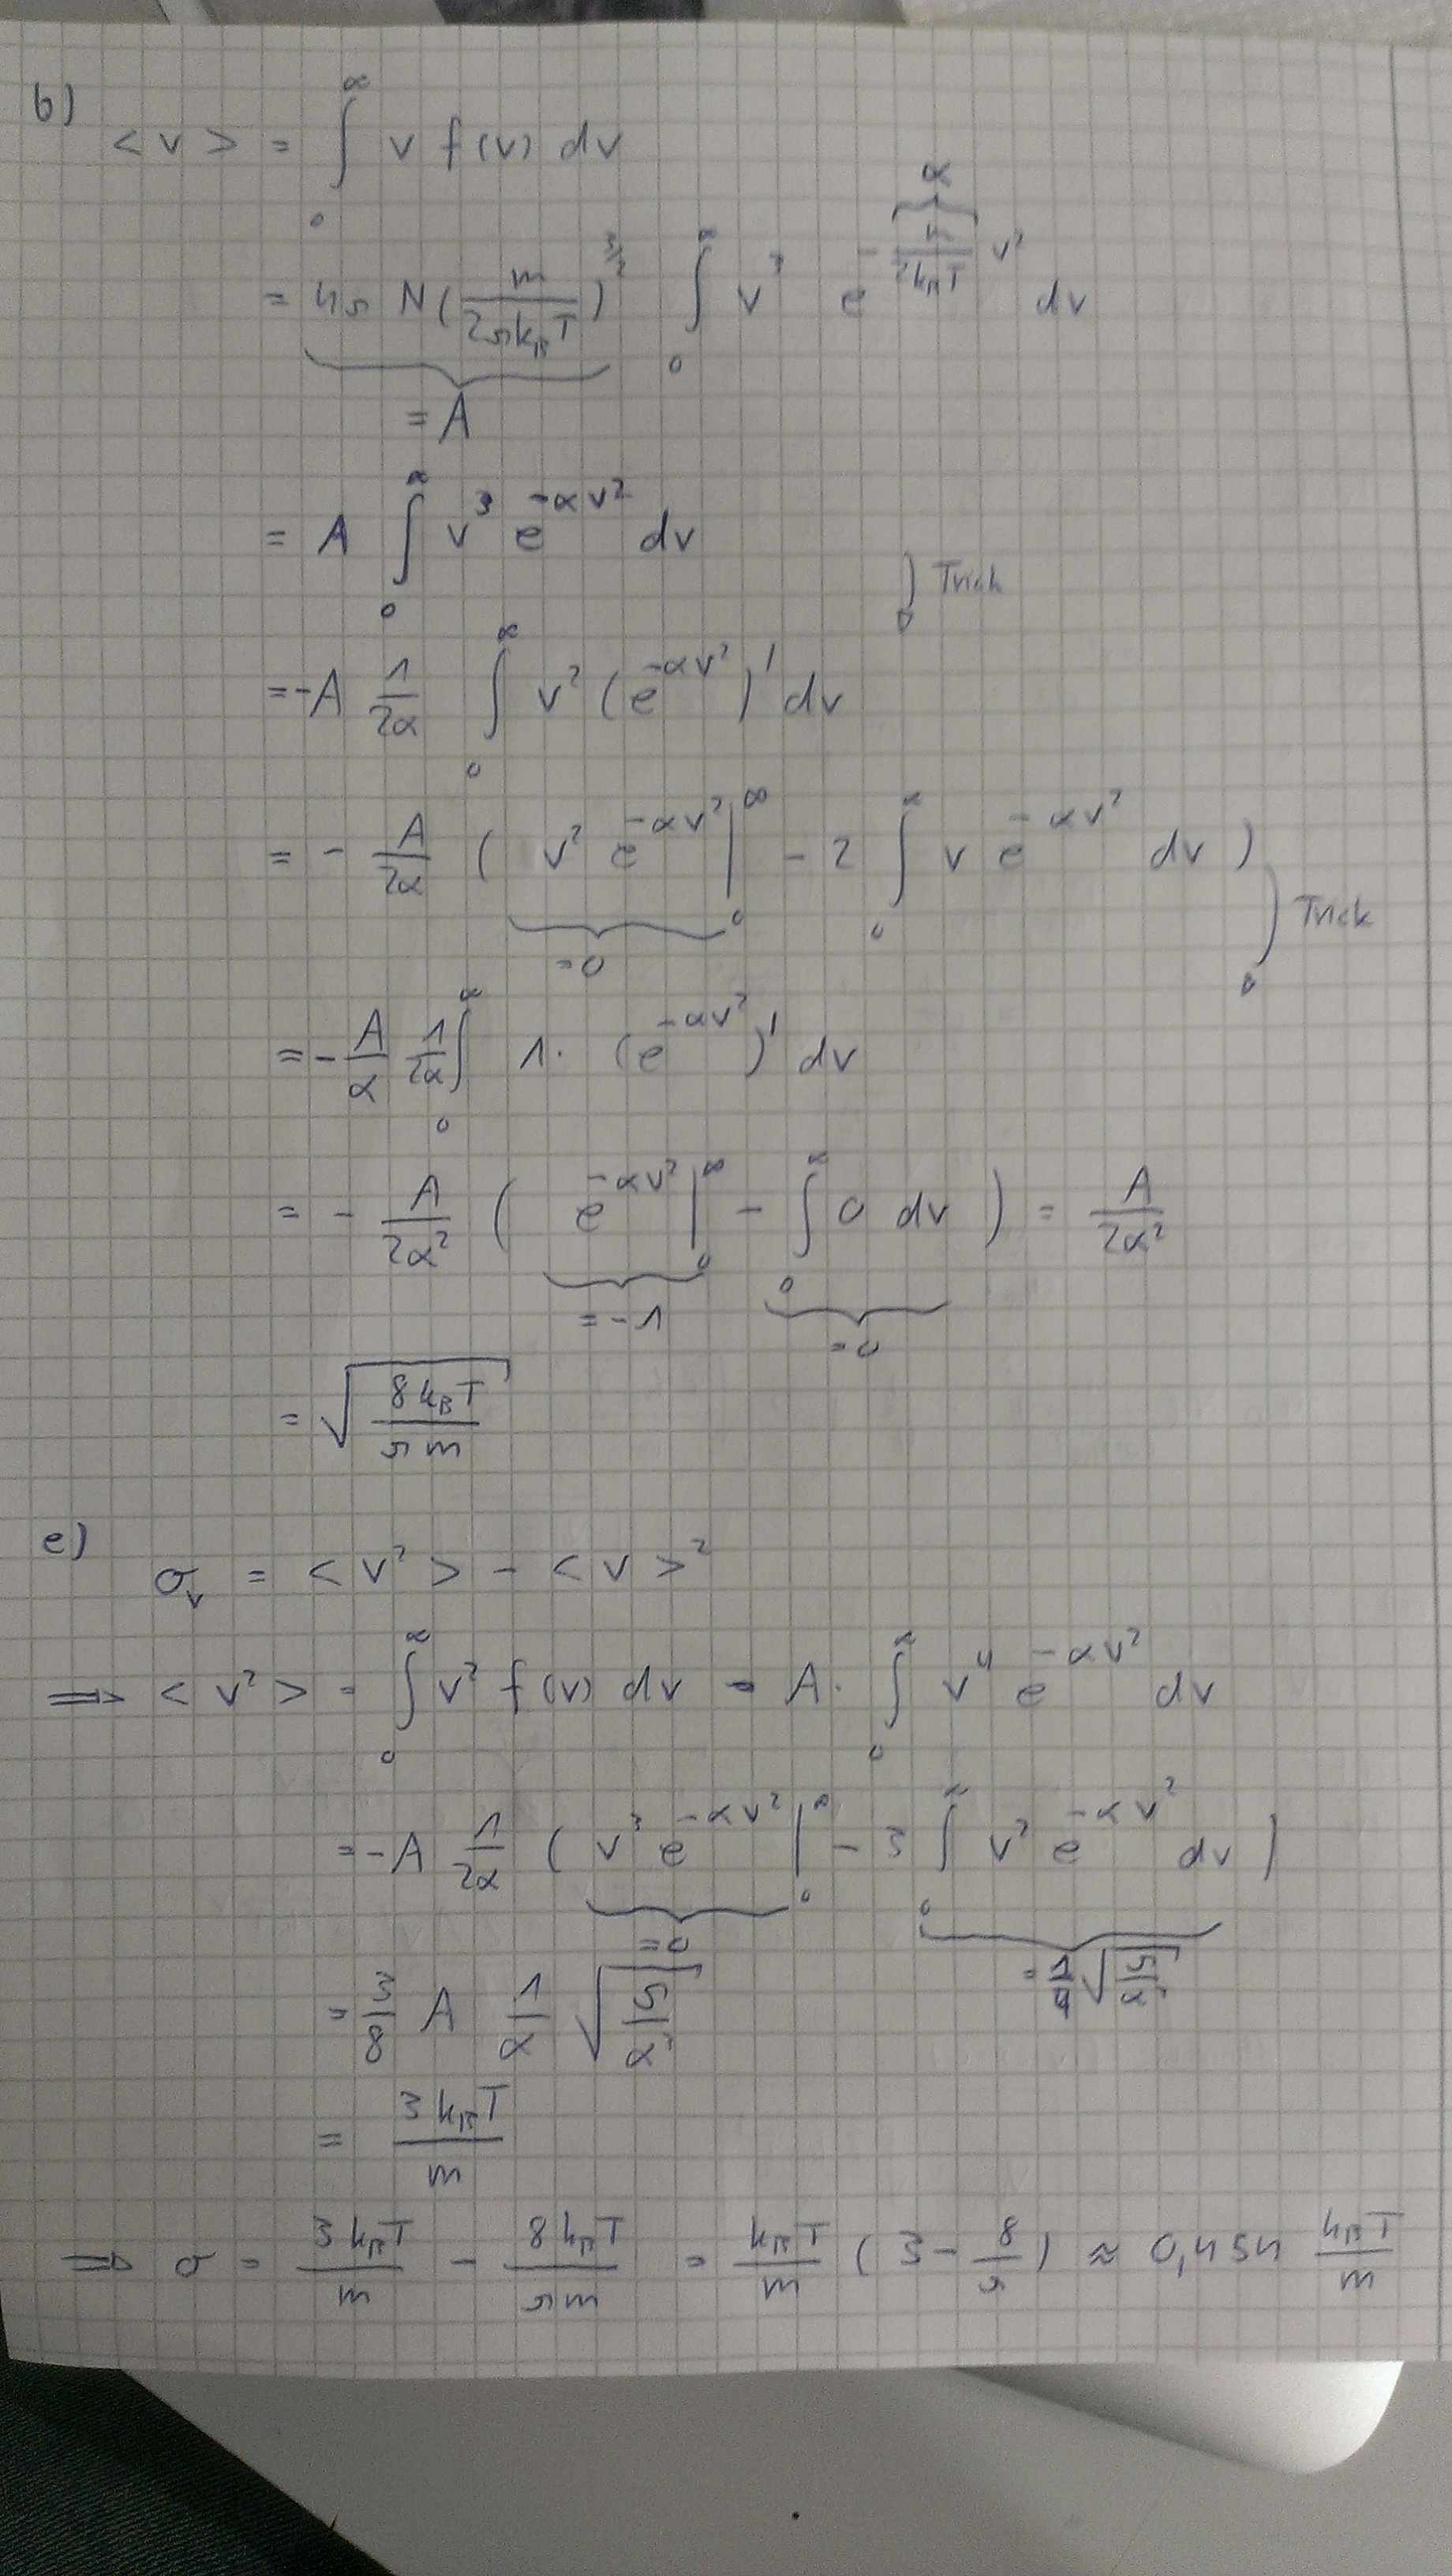 b)
<v> = ∫₀^∞ v f(v) dv
= 4π N (m/(2πk_BT))^(3/2) ∫₀^∞ v³ e^(-m/(2k_BT) v²) dv
α
= A
= A ∫₀^∞ v³ e^(-αv²) dv
Trick
= -A 1/(2α) ∫₀^∞ v² (e^(-αv²))' dv
= - A/(2α) ( v² e^(-αv²) |₀^∞ - 2 ∫₀^∞ v e^(-αv²) dv )
=0
Trick
= - A/α 1/(2α) ∫₀^∞ 1· (e^(-αv²))' dv
= - A/(2α²) ( e^(-αv²) |₀^∞ - ∫₀^∞ 0 dv ) = A/(2α²)
= -1 =0
= √(8k_BT/(πm))
e)
σ_v = <v²> - <v>²
⟹ <v²> = ∫₀^∞ v² f(v) dv = A· ∫₀^∞ v⁴ e^(-αv²) dv
= -A 1/(2α) ( v³ e^(-αv²) |₀^∞ - 3 ∫₀^∞ v² e^(-αv²) dv )
=0 = 1/4 √(π/α³)
= 3/8 A 1/α √(π/α³)
= 3k_BT/m
⟹ σ = 3k_BT/m - 8k_BT/(πm) = k_BT/m (3 - 8/π) ≈ 0,454 k_BT/m